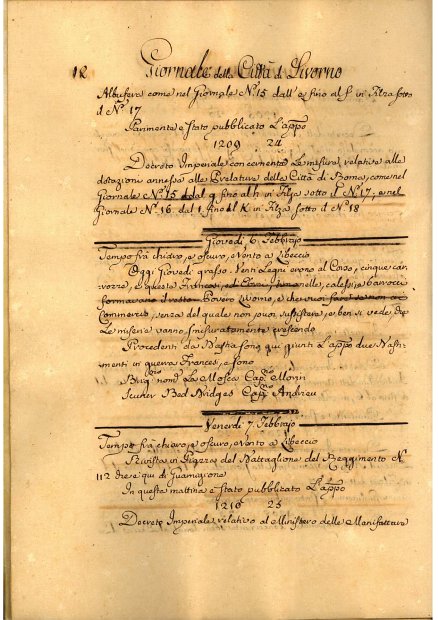 12 Giornale della Città di Livorno
Albufera come nel Giornale N.º 15 dall' e fino al f. in Filza sotto
il N.º 17
Parimente è stato pubblicato L'appo
1209 24
Decreto Imperiale concernente Le misure relative alle
dotazioni annesse alle Prelature della Città di Roma, come nel
Giornale N.º 15 dal g fino al h in Filza sotto il N.º 17, e nel
Giornale N.º 16. dal I fino al K in Filza sotto il N.º 18
Giovedì 6. Febbrajo
Tempo frà chiaro, e oscuro, e vento a Libeccio
Oggi Giovedì grasso. Venti Legni erono al Corso, cinque car-
rozze, e queste Francesi, ed calessi, e barrocci
formavano il resto. Povero Livorno, e
Commercio, senza del quale non puoi sussistere, e ben si vede, che
Le miserie vanno smisuratamente crescendo.
Procedenti da Bastia sono qui giunti L'appo due Basti-
menti in guerra Francesi, e sono
Brig nom.º La Mosca Cap.no Morin
Scuner Bed Bridges Cap.no Andrieu
Venerdì 7. Febbrajo
Tempo frà chiaro, e oscuro, e vento a Libeccio
Rivista in Piazza del Battaglione del Reggimento N.
112 che è qui di Guarnigione
In questa mattina è stato pubblicato L'appo
1210 25
Decreto Imperiale relativo al Ministero delle Manifatture